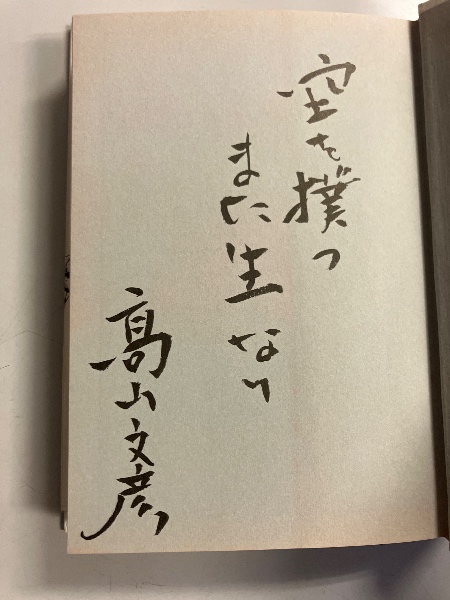 空を撲つ
また生なり
髙山文彦